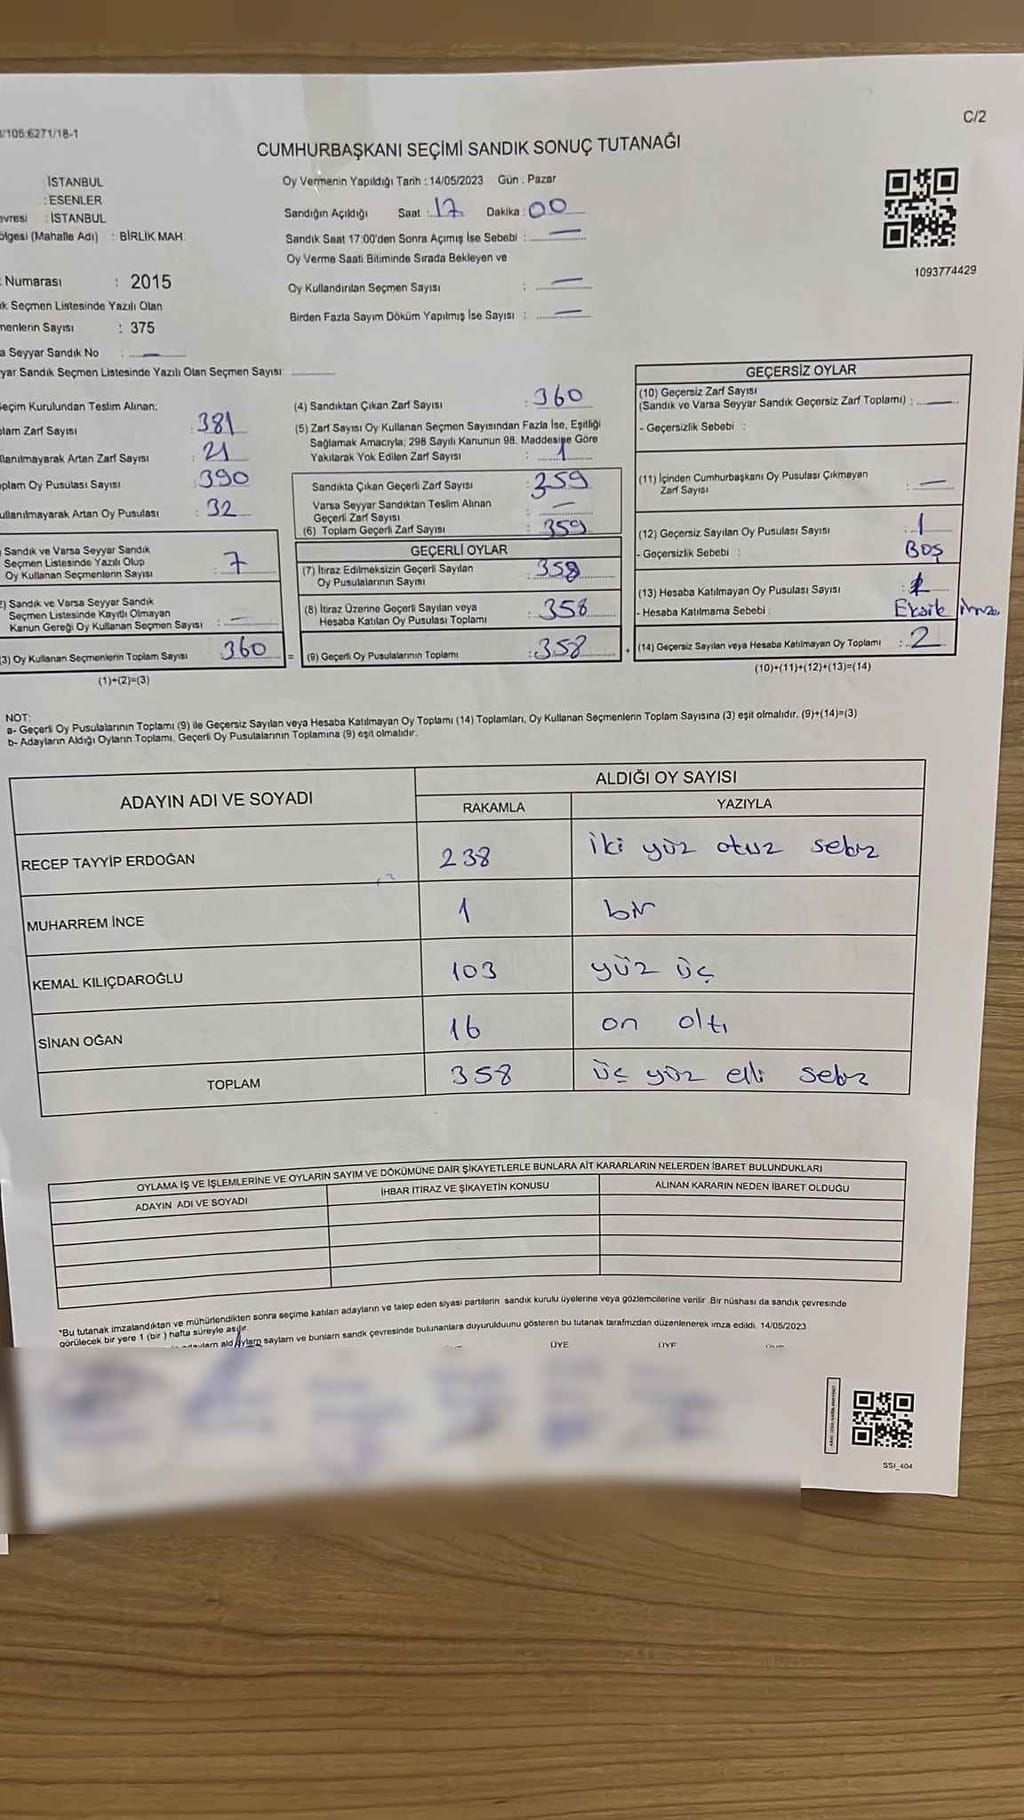 /105:6271/18-1
C/2
CUMHURBAŞKANI SEÇİMİ SANDIK SONUÇ TUTANAĞI
İSTANBUL
: ESENLER
evresi : İSTANBUL
ölgesi (Mahalle Adı) : BİRLİK MAH.
Numarası : 2015
ık Seçmen Listesinde Yazılı Olan
menlerin Sayısı : 375
a Seyyar Sandık No : —
yar Sandık Seçmen Listesinde Yazılı Olan Seçmen Sayısı
Oy Vermenin Yapıldığı Tarih : 14/05/2023 Gün : Pazar
Sandığın Açıldığı Saat : 17 Dakika : 00
Sandık Saat 17:00'den Sonra Açımış İse Sebebi : —
Oy Verme Saati Bitiminde Sırada Bekleyen ve
Oy Kullandırılan Seçmen Sayısı : —
Birden Fazla Sayım Döküm Yapılmış İse Sayısı : —
1093774429
eçim Kurulundan Teslim Alınan:
plam Zarf Sayısı : 381
llanılmayarak Artan Zarf Sayısı : 21
plam Oy Pusulası Sayısı : 390
ullanılmayarak Artan Oy Pusulası : 32
Sandık ve Varsa Seyyar Sandık
Seçmen Listesinde Yazılı Olup
Oy Kullanan Seçmenlerin Sayısı : 7
2) Sandık ve Varsa Seyyar Sandık
Seçmen Listesinde Kayıtlı Olmayan
Kanun Gereği Oy Kullanan Seçmen Sayısı : —
(3) Oy Kullanan Seçmenlerin Toplam Sayısı 360
(1)+(2)=(3)
(4) Sandıktan Çıkan Zarf Sayısı : 360
(5) Zarf Sayısı Oy Kullanan Seçmen Sayısından Fazla İse, Eşitliği
Sağlamak Amacıyla; 298 Sayılı Kanunun 98. Maddesine Göre
Yakılarak Yok Edilen Zarf Sayısı : 1
Sandıkta Çıkan Geçerli Zarf Sayısı : 359
Varsa Seyyar Sandıktan Teslim Alınan
Geçerli Zarf Sayısı : —
(6) Toplam Geçerli Zarf Sayısı : 359
GEÇERLİ OYLAR
(7) İtiraz Edilmeksizin Geçerli Sayılan
Oy Pusulalarının Sayını : 358
(8) İtiraz Üzerine Geçerli Sayılan veya
Hesaba Katılan Oy Pusulası Toplamı : 358
= (9) Geçerli Oy Pusulalarının Toplamı : 358
GEÇERSİZ OYLAR
(10) Geçersiz Zarf Sayısı
(Sandık ve Varsa Seyyar Sandık Geçersiz Zarf Toplamı) : —
- Geçersizlik Sebebi :
(11) İçinden Cumhurbaşkanı Oy Pusulası Çıkmayan
Zarf Sayısı : —
(12) Geçersiz Sayılan Oy Pusulası Sayısı : 1
- Geçersizlik Sebebi : Boş
(13) Hesaba Katılmayan Oy Pusulası Sayısı : 1
- Hesaba Katılmama Sebebi : Eksik imza
+ (14) Geçersiz Sayılan veya Hesaba Katılmayan Oy Toplamı : 2
(10)+(11)+(12)+(13)=(14)
NOT:
a- Geçerli Oy Pusulalarının Toplamı (9) ile Geçersiz Sayılan veya Hesaba Katılmayan Oy Toplamı (14) Toplamları, Oy Kullanan Seçmenlerin Toplam Sayısına (3) eşit olmalıdır. (9)+(14)=(3)
b- Adayların Aldığı Oyların Toplamı, Geçerli Oy Pusulalarının Toplamına (9) eşit olmalıdır.
ADAYIN ADI VE SOYADI ALDIĞI OY SAYISI
RAKAMLA YAZIYLA
RECEP TAYYİP ERDOĞAN 238 iki yüz otuz sekiz
MUHARREM İNCE 1 bir
KEMAL KILIÇDAROĞLU 103 yüz üç
SİNAN OĞAN 16 on altı
TOPLAM 358 üç yüz elli sekiz
OYLAMA İŞ VE İŞLEMLERİNE VE OYLARIN SAYIM VE DÖKÜMÜNE DAİR ŞİKAYETLERLE BUNLARA AİT KARARLARIN NELERDEN İBARET BULUNDUKLARI
ADAYIN ADI VE SOYADI İHBAR İTİRAZ VE ŞİKAYETİN KONUSU ALINAN KARARIN NEDEN İBARET OLDUĞU
"Bu tutanak imzalandıktan ve mühürlendikten sonra seçime katılan adayların ve talep eden siyasi partilerin sandık kurulu üyelerine veya gözlemcilerine verilir. Bir nüshası da sandık çevresinde
görülecek bir yere 1 (bir ) hafta süreyle asılır.
saylarn ve bunların sandık çevresinde bulunanlara duyurulduunu gösteren bu tutanak tarafmzdan düzenlenerek imza edildi. 14/05/2023
ÜYE ÜYE
SSI_404